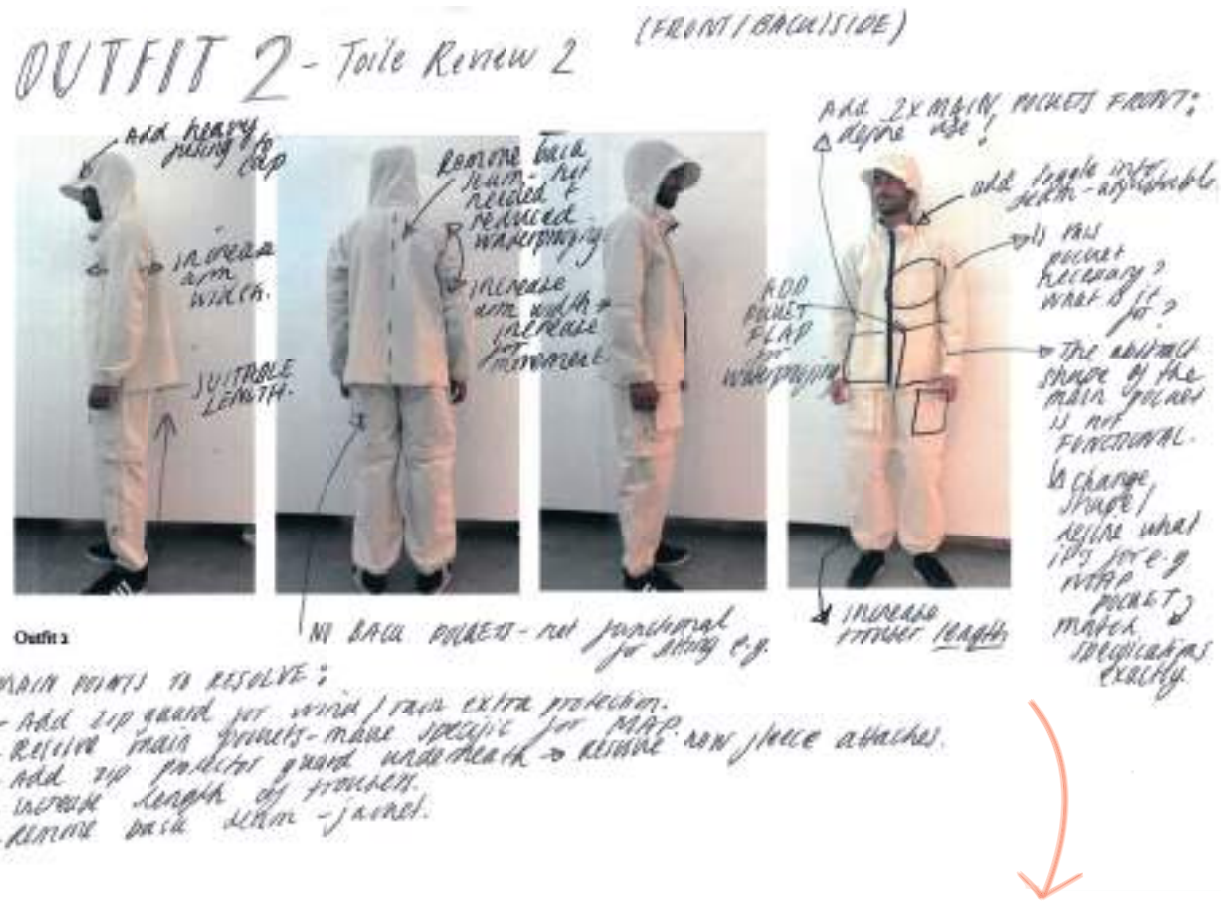 (FRONT/BACK/SIDE)
OUTFIT 2 - Toile Review 2
Add heavy
fusing to
cap
increase
arm
width.
SUITABLE
LENGTH.
Remove back
seam - not
needed &
reduced
waterproofing.
increase
arm width &
increase
for
movement.
Add 2x MAIN POCKETS FRONT:
define use!
add toggle into
- adjustable.
is this
pocket
necessary?
what is it
for?
ADD
POCKET
FLAP
for
waterproofing
The abstract
shape of the
main pocket
is not
FUNCTIONAL.
change
shape/
define what
it's for e.g
MAP
POCKET
match
specifications
exactly
increase
trouser length
Outfit 2
NO BACK POCKETS - not functional
for sitting e.g.
MAIN POINTS TO RESOLVE:
- Add zip guard for wind/rain extra protection.
- Resolve main pockets - make specific for MAP.
- Add zip protector guard underneath → Resolve how fleece attaches.
- increase length of trousers.
- Remove back seam - jacket.